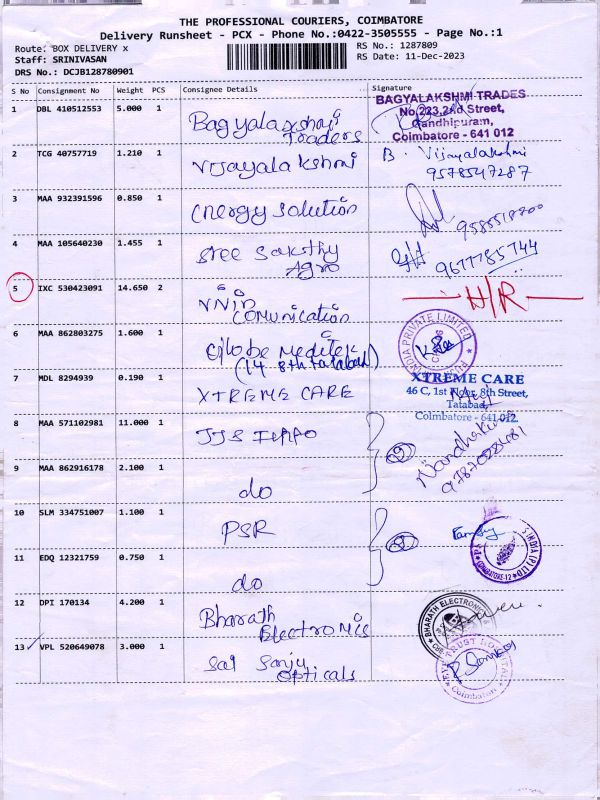 THE PROFESSIONAL COURIERS, COIMBATORE
Delivery Runsheet - PCX - Phone No.:0422-3505555 - Page No.:1
Route: BOX DELIVERY x
RS No.: 1287809
Staff: SRINIVASAN
RS Date: 11-Dec-2023
DRS No.: DCJB128780901
S No Consignment No Weight PCS Consignee Details Signature
1 DBL 410512553 5.000 1 Bagyalakshmi
Traders
BAGYALAKSHMI TRADES
No.223,2nd Street,
Gandhipuram,
Coimbatore - 641 012
2 TCG 40757719 1.210 1 Vijayalakshmi B. Vijayalakshmi
9578547287
3 MAA 932391596 0.850 1 Energy Solution
4 MAA 105640230 1.455 1 Sree Sakthy
Agro
9677785744
5 IXC 530423091 14.650 2 VNin
COMUnication
H/R
6 MAA 862803275 1.600 1 Globe Meditek
(14 8th Tatabad)
INDIA PRIVATE LIMITED
7 MDL 8294939 0.190 1 XTREME CARE
XTREME CARE
46 C, 1st Floor, 8th Street,
Tatabad,
Coimbatore - 641 012.
8 MAA 571102981 11.000 1 JJS
9 MAA 862916178 2.100 1 do
10 SLM 334751007 1.100 1 PSR
11 EDQ 12321759 0.750 1 do
COIMBATORE-12
INDIA (P) LTD
12 DPI 170134 4.200 1 Bharath
Electronics
BHARATH ELECTRONICS
13 VPL 520649078 3.000 1 Sai Sanju
Opticals
Coimbatore